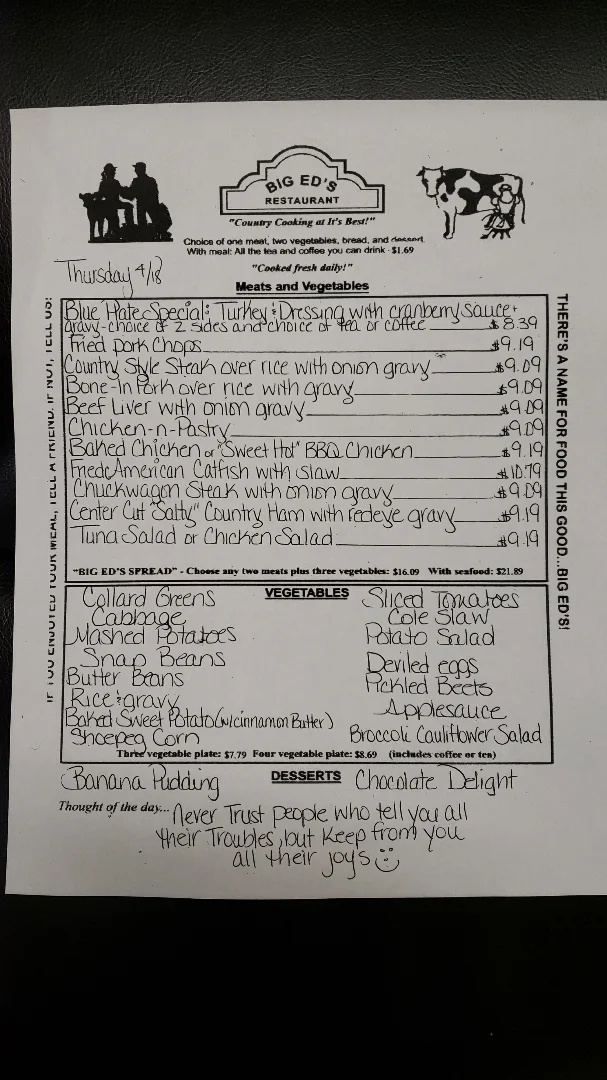 BIG ED'S
RESTAURANT
"Country Cooking at It's Best!"
Choice of one meat, two vegetables, bread, and dessert.
With meal: All the tea and coffee you can drink - $1.69
"Cooked fresh daily!"
Thursday 4/18
Meats and Vegetables
Blue Plate Special: Turkey & Dressing with cranberry sauce +
gravy-choice of 2 sides and choice of tea or coffee $8.39
Fried Pork Chops $9.19
Country Style Steak over rice with onion gravy $9.09
Bone-In Pork over rice with gravy $9.09
Beef Liver with onion gravy $9.09
Chicken-n-Pastry $9.09
Baked Chicken or "Sweet Hot" BBQ Chicken $9.19
Fried American Catfish with slaw $10.79
Chuckwagon Steak with onion gravy $9.09
Center Cut "Salty" Country Ham with redeye gravy $9.19
Tuna Salad or Chicken Salad $9.19
"BIG ED'S SPREAD" - Choose any two meats plus three vegetables: $16.09 With seafood: $21.89
VEGETABLES
Collard Greens
Cabbage
Mashed Potatoes
Snap Beans
Butter Beans
Rice & gravy
Baked Sweet Potato (w/cinnamon Butter)
Shoepeg Corn
Sliced Tomatoes
Cole Slaw
Potato Salad
Deviled eggs
Pickled Beets
Applesauce
Broccoli Cauliflower Salad
Three vegetable plate: $7.79 Four vegetable plate: $8.69 (includes coffee or tea)
DESSERTS
Banana Pudding
Chocolate Delight
Thought of the day... Never Trust people who tell you all
their Troubles, but Keep from you
all their joys
IF YOU ENJOYED YOUR MEAL, TELL A FRIEND. IF NOT, TELL US!
THERE'S A NAME FOR FOOD THIS GOOD...BIG ED'S!